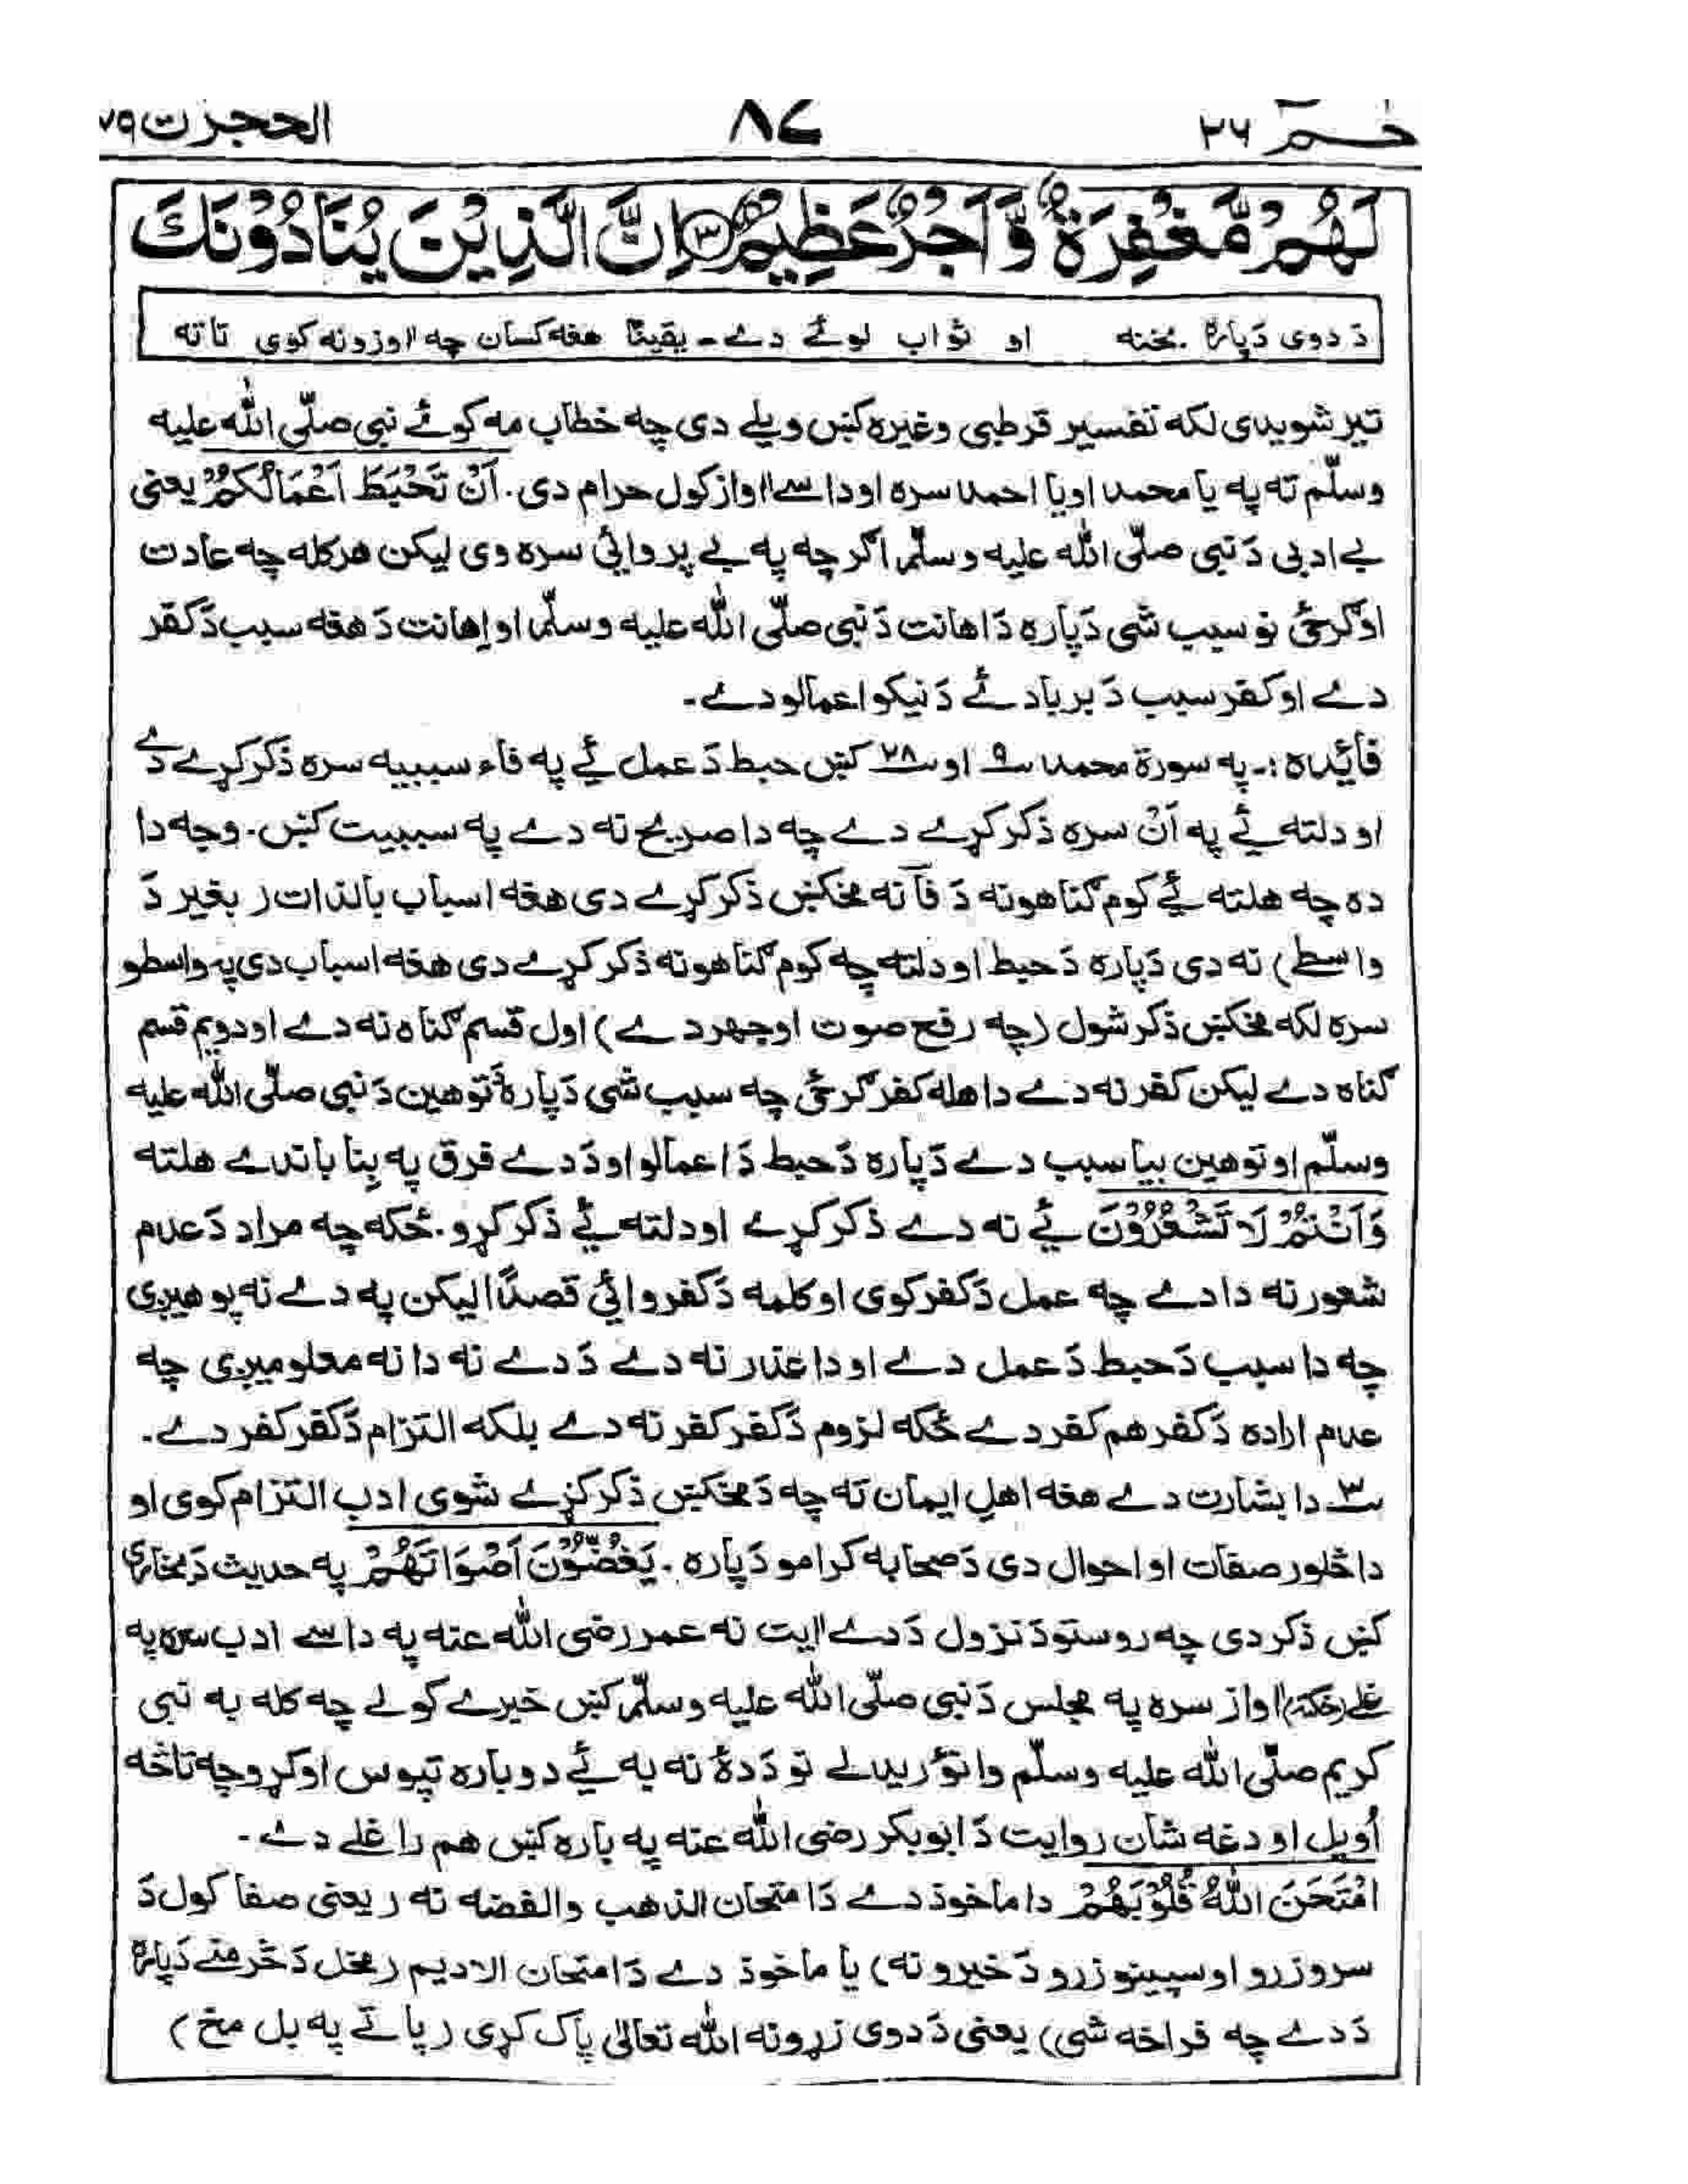 حٰمٓ ٢٦
٨٧
الحجرٰت ٤٩
لَهُمْ مَّغْفِرَةٌ وَّاَجْرٌ عَظِيْمٌ ﴿٣﴾ اِنَّ الَّذِيْنَ يُنَادُوْنَكَ
دَ دوی دَپاره بخنه او ثواب لوئے دے۔ یقینًا هغه کسان چه اوازونه کوی تا ته
تیر شویدی لکه تفسیر قرطبی وغیره کښ ویلے دی چه خطاب مه کوئے نبی صلّی اللّٰه علیه
وسلّم ته په یا محمد او یا احمد سره او داسے اواز کول حرام دی. اَنْ تَحْبَطَ اَعْمَالُكُمْ یعنی
بے ادبی دَ نبی صلّی اللّٰه علیه وسلّم اگر چه په بے پروائی سره وی لیکن هرکله چه عادت
اوګرځی نو سبب شی دَپاره دَ اهانت دَ نبی صلّی اللّٰه علیه وسلّم او اِهانت دَ هغه سبب دَ کفر
دے او کفر سبب دَ بربادئے دَ نیکو اعمالو دے۔
فائیده :۔ په سورة محمد ٩ او ٢٨ کښ حبط دَ عمل ئے په فاء سببیه سره ذکر کړے دے
او دلته ئے په اَنْ سره ذکر کړے دے چه دا صریح نه دے په سببیت کښ. وجه دا
ده چه هلته ئے کوم ګناهونه دَ فآ نه مخکښ ذکر کړے دی هغه اسباب بالذات (بغیر دَ
واسطے) نه دی دَپاره دَ حبط او دلته چه کوم ګناهونه ذکر کړے دی هغه اسباب دی په واسطو
سره لکه مخکښ ذکر شول (چه رفع صوت او جهر دے) اول قسم ګناه نه دے او دویم قسم
ګناه دے لیکن کفر نه دے دا هله کفر ګرځی چه سبب شی دَپاره دَ توهین دَ نبی صلّی اللّٰه علیه
وسلّم او توهین بیا سبب دے دَپاره دَ حبط دَ اعمالو او دَ دے فرق په بِنا باندے هلته
وَاَنْتُمْ لَا تَشْعُرُوْنَ ئے نه دے ذکر کړے او دلته ئے ذکر کړو. ځکه چه مراد دَ عدم
شعور نه دا دے چه عمل دَ کفر کوی او کلمه دَ کفر وائی قصدًا لیکن په دے نه پوهیږی
چه دا سبب دَ حبط دَ عمل دے او دا عذر نه دے دَ دے نه دا نه معلومیږی چه
عدم اراده دَ کفر هم کفر دے ځکه لزوم دَ کفر کفر نه دے بلکه التزام دَ کفر کفر دے.
٣ دا بشارت دے هغه اهلِ ایمان ته چه دَ مخکښ ذکر کړے شوی ادب التزام کوی او
دا څلور صفات او احوال دی دَ صحابه کرامو دَپاره. يَغُضُّوْنَ اَصْوَاتَهُمْ په حدیث دَ بخاری
کښ ذکر دی چه روستو دَ نزول دَ دے ایت نه عمر رضی اللّٰه عنه په داسے ادب سره په
غلے (خکته) اواز سره په مجلس دَ نبی صلّی اللّٰه علیه وسلّم کښ خبرے کولے چه کله به نبی
کریم صلّی اللّٰه علیه وسلّم وانوریدلے نو دَ دهٔ نه به ئے دوباره تپوس اوکړو چه تا څه
اُویل او دغه شان روایت دَ ابوبکر رضی اللّٰه عنه په باره کښ هم راغلے دے۔
امْتَحَنَ اللّٰهُ قُلُوْبَهُمْ دا ماخوذ دے دَ امتحان الذهب والفضه نه (یعنی صفا کول دَ
سرو زرو او سپینو زرو دَ خیرو نه) یا ماخوذ دے دَ امتحان الادیم (غځل دَ څرمنے دَپاره
دَ دے چه فراخه شی) یعنی دَ دوی زړونه اللّٰه تعالیٰ پاک کړی (پاتے په بل مخ)